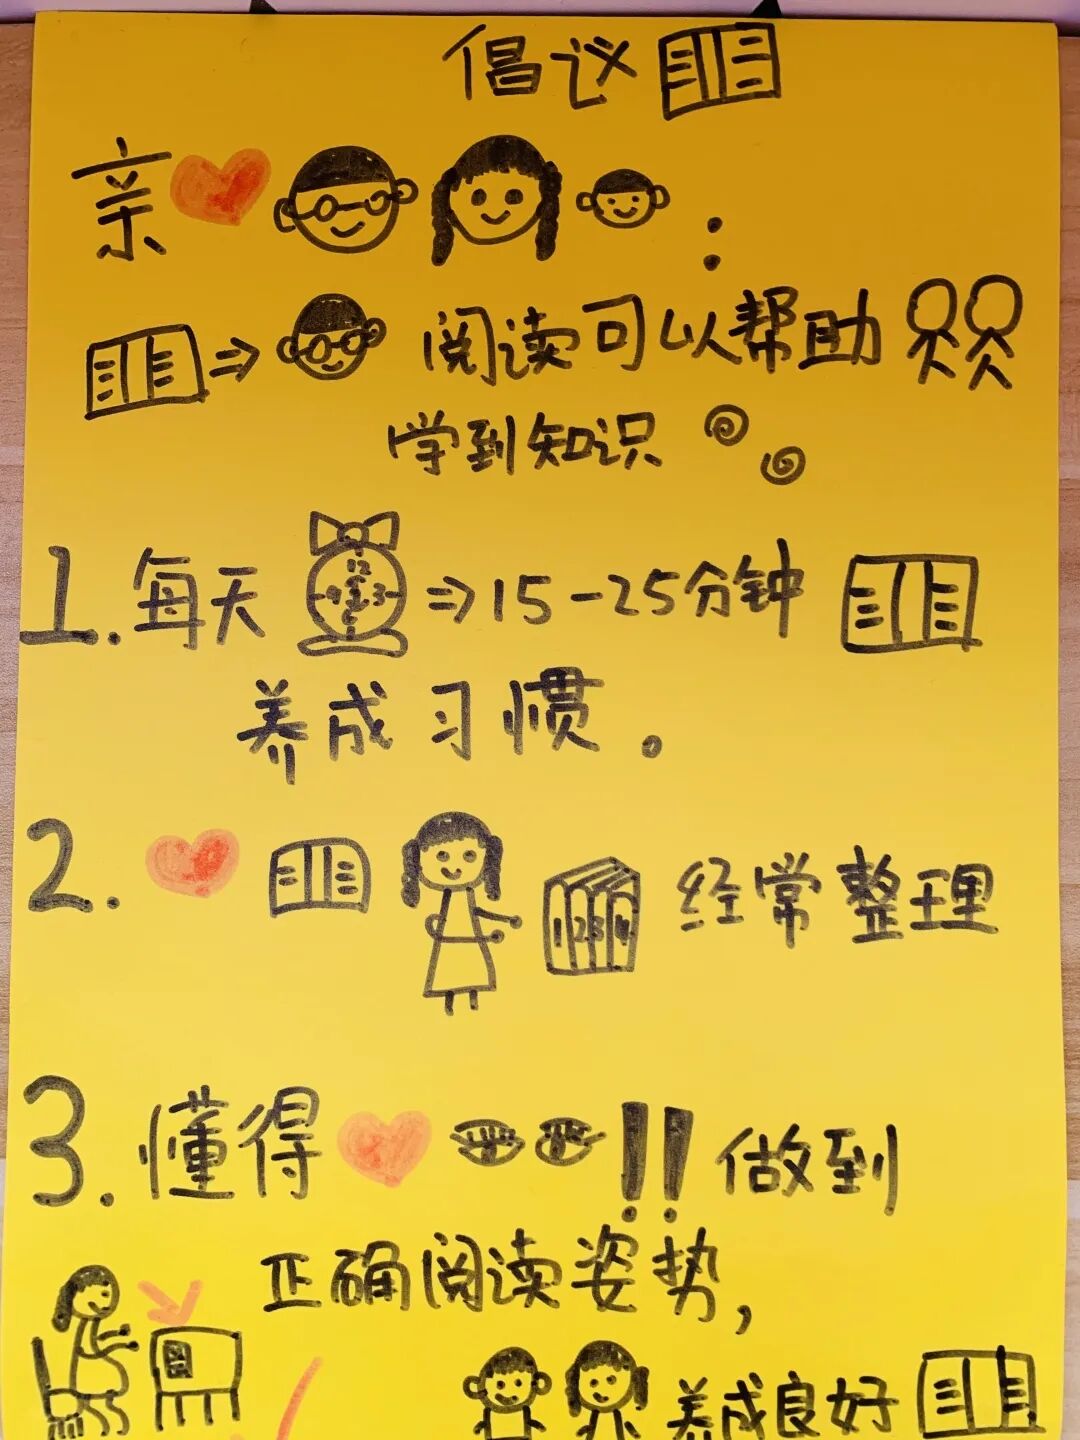 倡议
亲:
阅读可以帮助
学到知识
1.每天 15-25分钟
养成习惯。
2. 经常整理
3.懂得 !! 做到
正确阅读姿势,
养成良好